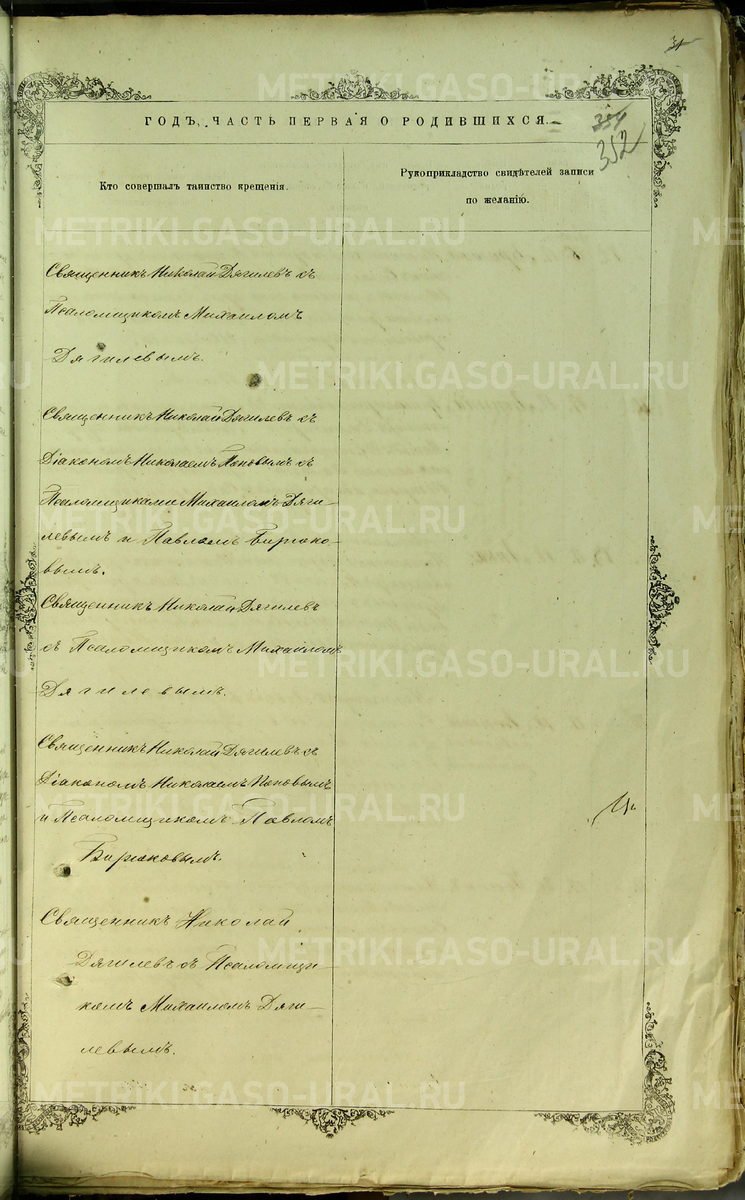 ГОДЪ, ЧАСТЬ ПЕРВАЯ О РОДИВШИХСЯ.
352
Кто совершалъ таинство крещенія.
Рукоприкладство свидѣтелей записи
по желанію.
Священникъ Николай Дягилевъ съ
Псаломщикомъ Михаиломъ
Дягилевымъ.
Священникъ Николай Дягилевъ съ
Діакономъ Николаемъ Поповымъ съ
Псаломщиками Михаиломъ Дяги-
левымъ и Павломъ Бирюко-
вымъ.
Священникъ Николай Дягилевъ
съ Псаломщикомъ Михаиломъ
Дягилевымъ.
Священникъ Николай Дягилевъ съ
Діакономъ Николаемъ Поповымъ
и Псаломщикомъ Павломъ
Бирюковымъ.
Священникъ Николай
Дягилевъ съ Псаломщи-
комъ Михаиломъ Дяги-
левымъ.
METRIKI.GASO-URAL.RU